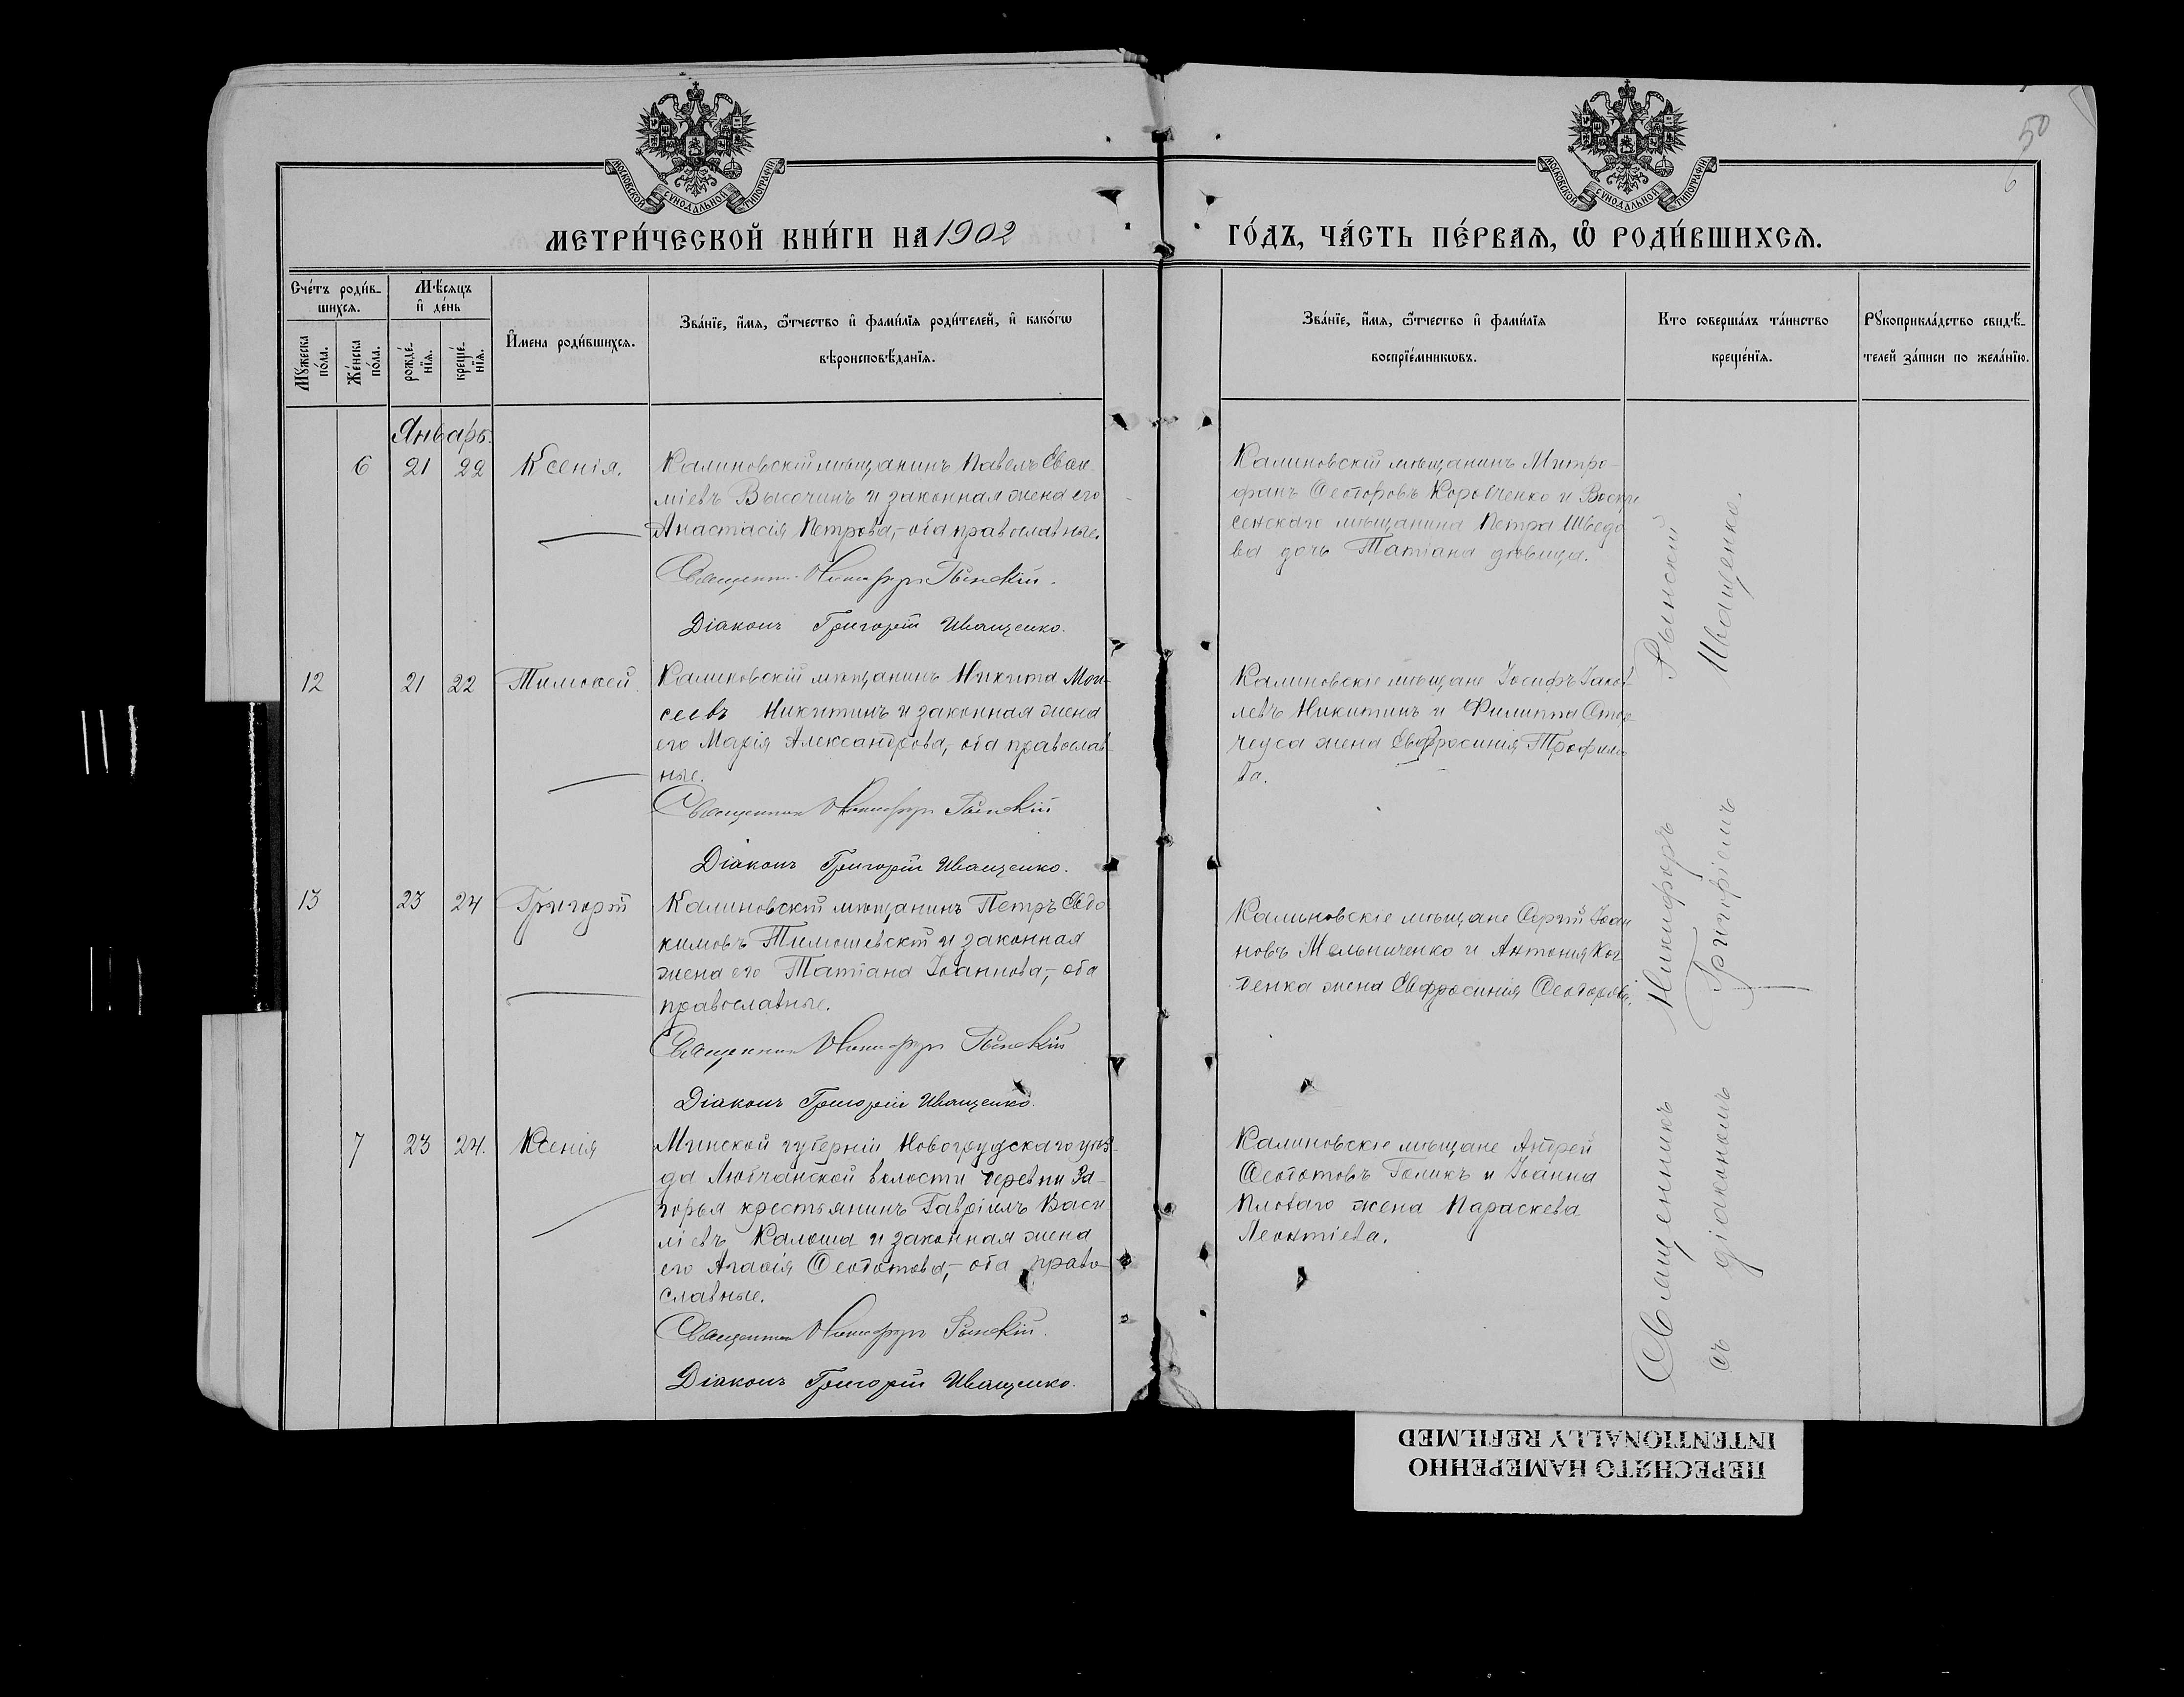 50
МОСКОВСКОЙ СѴНОДАЛЬНОЙ ТИПОГРАФІИ
МОСКОВСКОЙ СѴНОДАЛЬНОЙ ТИПОГРАФІИ
МЕТРИ́ЧЕСКОЙ КНИ́ГИ НА 1902
ГО́ДЪ, ЧА́СТЬ ПЕ́РВАѦ, Ѡ҆ РОДИ́ВШИХСѦ.
Сче́тъ роди́в-
шихсѧ.
Мѣ́сѧцъ
и҆ де́нь
Мꙋ́жеска
по́ла.
Же́нска
по́ла.
рожде́-
нїѧ.
креще́-
нїѧ.
И҆мена роди́вшихсѧ.
Зва́нїе, и҆́мѧ, ѻ҆́тчество и҆ фами́лїѧ роди́телей, и҆ како́гѡ
вѣроисповѣ́данїѧ.
Зва́нїе, и҆́мѧ, ѻ҆́тчество и҆ фами́лїѧ
воспрїе́мникѡвъ.
Кто соверша́лъ та́инство
креще́нїѧ.
Рꙋкоприкла́дство свидѣ́-
телей за́писи по жела́нїю.
Январь.
6 21 22 Ксенія.
Калиновскій мѣщанинъ Павелъ
міевъ Высочинъ и законная жена его
Анастасія Петрова,- оба православные.
Священникъ Никифоръ Рынскій.
Діаконъ Григорій Иващенко.
Калиновскій мѣщанинъ Митро-
фанъ Ѳеодоровъ Коробченко и Воскре
сенскаго мѣщанина Петра Шведо
ва дочь Татіана дѣвица.
12 21 22 Тимоѳей.
Калиновскій мѣщанинъ Никита Мои-
сеевъ Никитинъ и законная жена
его Марія Александрова,- оба православ
ные.
Священникъ Никифоръ Рынскій
Діаконъ Григорій Иващенко.
Калиновскіе мѣщане Іосифъ Іаков
левъ Никитинъ и Филиппа
жена Евфросинія Трофимо
ва.
13 23 24 Григорій
Калиновскій мѣщанинъ Петръ Евдо
кимовъ Тимошевскій и законная
жена его Татіана Іоаннова,- оба
православные.
Священникъ Никифоръ Рынскій
Діаконъ Григорій Иващенко.
Калиновскіе мѣщане Сергій Іоан
новъ Мельниченко и Антонія
жена Евфросинія Ѳеодорова.
7 23 24. Ксенія
Минской губерніи Новогрудскаго уѣз-
да Любчанской волости деревни За-
горья крестьянинъ Гавріилъ Васи
ліевъ Калоша и законная жена
его Агаѳія Ѳеодотова,- оба право-
славные.
Священникъ Никифоръ Рынскій.
Діаконъ Григорій Иващенко.
Калиновскіе мѣщане Андрей
Ѳеодотовъ Голикъ и Іоанна
Плотаго жена Параскева
Леонтіева.
Священникъ Никифоръ Рынскій
съ діакономъ Григоріемъ Иващенко.
ПЕРЕСНЯТО НАМЕРЕННО
INTENTIONALLY REFILMED